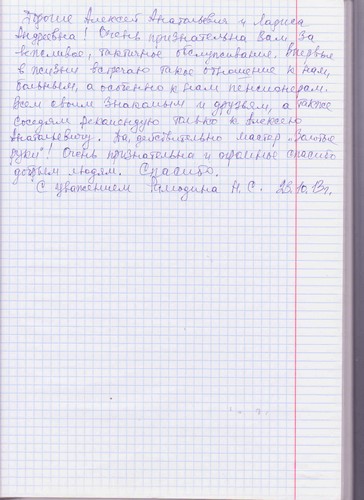 Дорогие Алексей Анатольевич и Лариса
Андреевна! Очень признательна Вам за
вежливое, тактичное обслуживание. Впервые
в жизни встречаю такое отношение к нам,
больным, а особенно к нам пенсионерам.
Всем своим знакомым и друзьям, а также
соседям рекомендую только к Алексею
Анатольевичу. Да, действительно мастер "Золотые
руки"! Очень признательна и огромное спасибо
добрым людям. Спасибо.
С уважением Н. С. 23.10.13г.